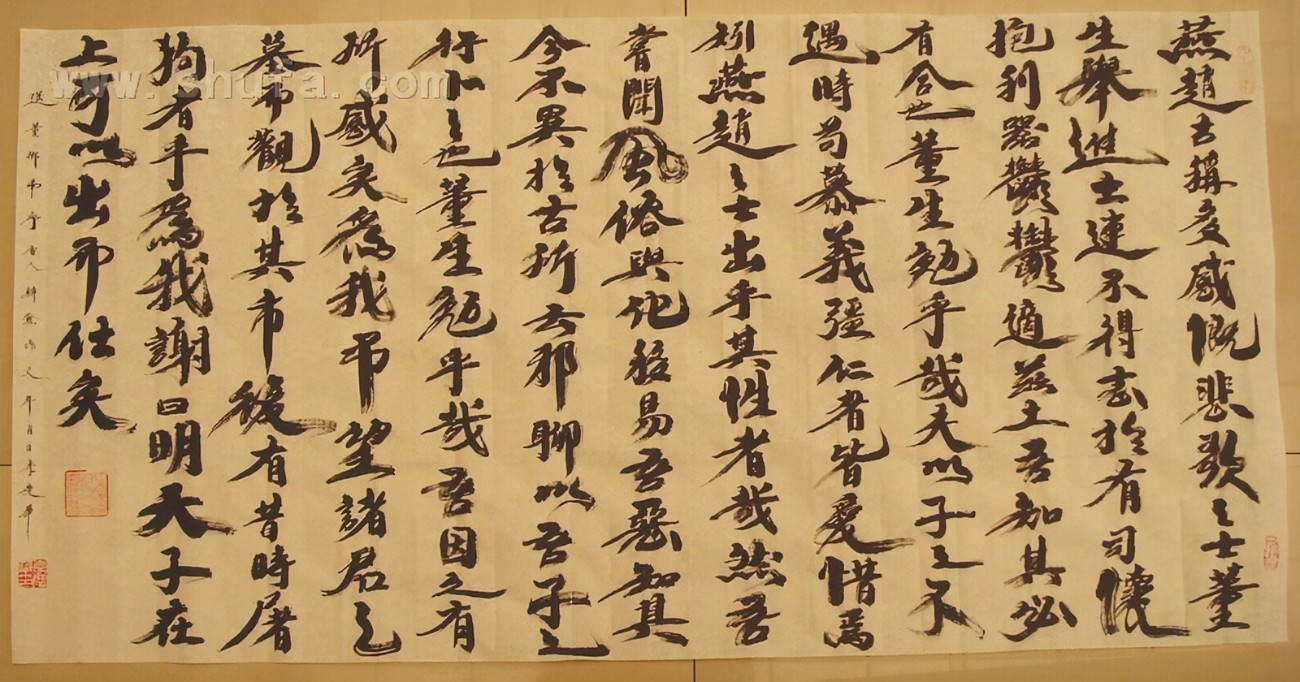 燕趙古稱多感慨悲歌之士董
生舉進士連不得志於有司懷
抱利器鬱鬱適茲土吾知其必
有合也董生勉乎哉夫以子之不
遇時苟慕義彊仁者皆愛惜焉
矧燕趙之士出乎其性者哉然吾
嘗聞風俗與化移易吾惡知其
今不異於古所云邪聊以吾子之
行卜之也董生勉乎哉吾因之有
所感矣爲我弔望諸君之
墓而觀於其市復有昔時屠
狗者乎爲我謝曰明天子在
上可以出而仕矣
送董邵南序唐人韓愈作文年月日李華
www.shufa.com